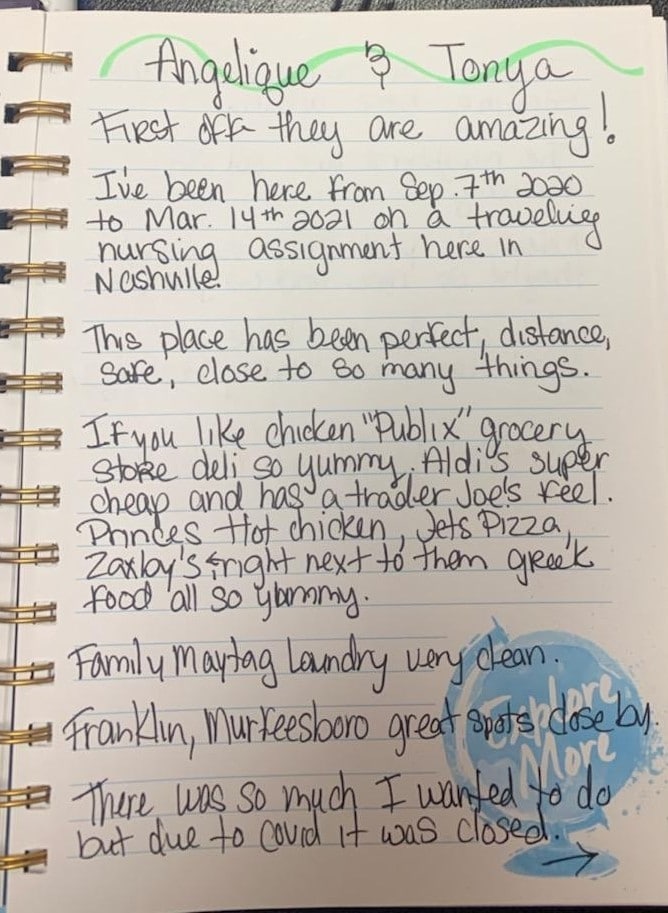 Angelique & Tonya
First off they are amazing!
I've been here from Sep. 7th 2020
to Mar. 14th 2021 on a traveling
nursing assignment here in
Nashville.
This place has been perfect, distance,
safe, close to so many things.
If you like chicken "Publix" grocery
store deli so yummy. Aldi's super
cheap and has a trader Joe's feel.
Princes Hot chicken, Jets Pizza,
Zaxby's & right next to them greek
food all so yummy.
Family Maytag Laundry very clean.
Franklin, Murfeesboro great spots close by.
Explore
More
There was so much I wanted to do
but due to Covid it was closed.
→